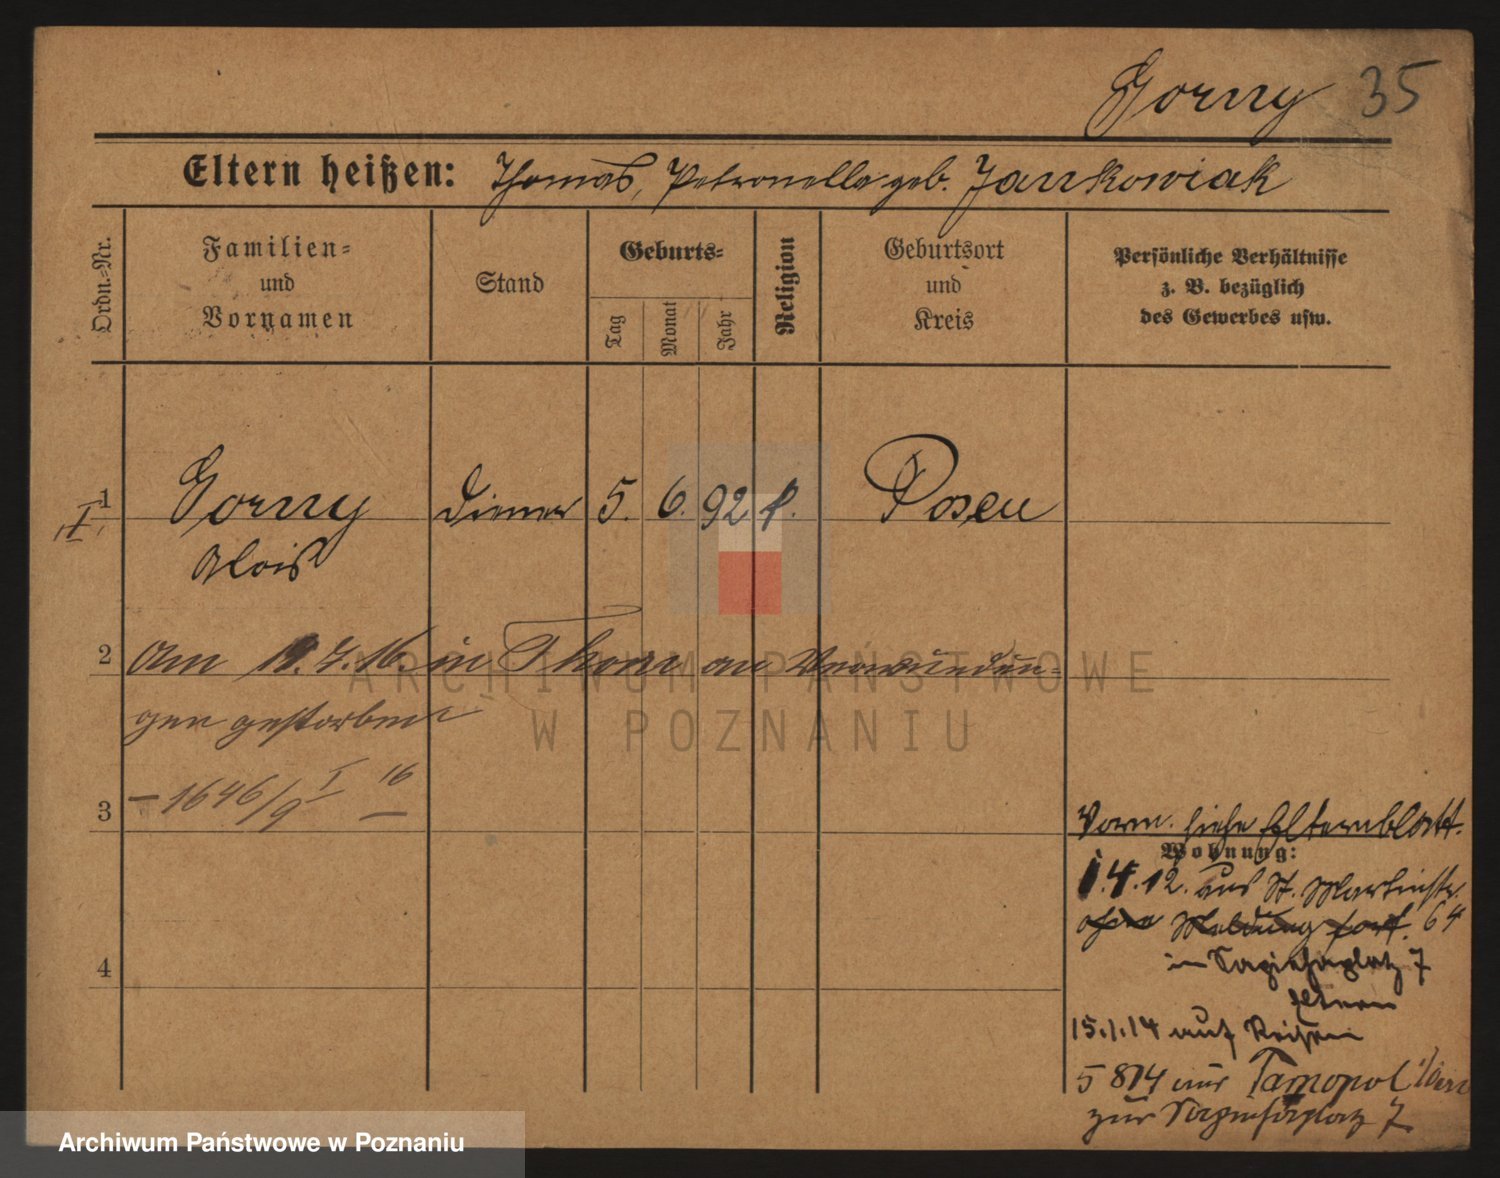 Gorny 35
Eltern heißen: Thomas, Petronella geb. Jankowiak
Ordn.-Nr.
Familien-
und
Vornamen
Stand
Geburts-
Tag
Monat
Jahr
Religion
Geburtsort
und
Kreis
Persönliche Verhältnisse
z. B. bezüglich
des Gewerbes usw.
1 Gorny Diener 5. 6. 92 k. Posen
Alois
2 Am 11. 7. 16. in Thorn an Verwundun-
gen gestorben
3 – 1646/9 I 16
4
Vorm. siehe Elternblatt.
Wohnung:
1.4.12. aus St. Martinstr.
ohne Meldung fort. 64
in Sapiehaplatz 7
Eltern
15.1.14 auf Reisen
5 8 14 aus Tarnopol
zur Sapiehaplatz 7
ARCHIWUM PAŃSTWOWE
W POZNANIU
Archiwum Państwowe w Poznaniu